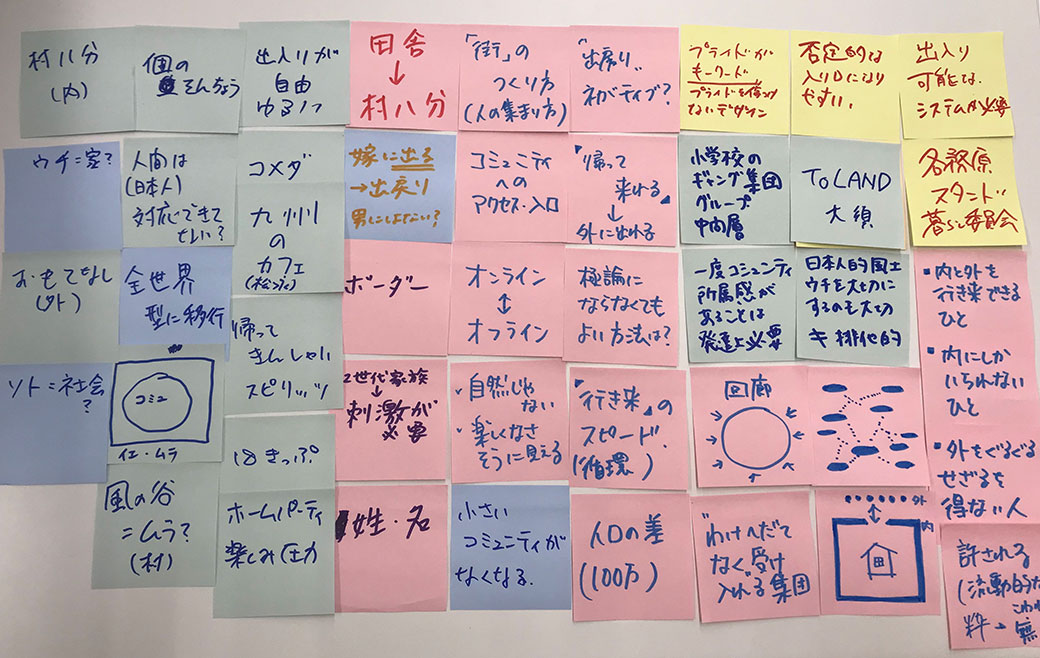 村八分
(内)
個の
そんちょう
出入りが
自由
ゆるい
田舎
↓
村八分
「街」の
つくり方
(人の集まり方)
"出戻り"
ネガティブ?
プライドが
キーワード
プライドを傷つけ
ないデザイン
否定的な
入り口になり
やすい。
出入り
可能な
システムが必要
ウチ=家?
人間は
(日本人)
対応できて
ない?
コメダ
嫁に出る
→出戻り
男にはない?
コミュニティ
への
アクセス・入口
「帰って
来れる」
↓
外に出れる
小学校の
ギャング集団
グループ
中内層
To LAND
大須
各務原
スタンド
暮らし委員会
おもてなし
(外)
全世界
型に移行
九州
の
カフェ
ボーダー
オンライン
↕
オフライン
極論に
ならなくても
よい方法は?
一度コミュニティ
所属感が
あることは
発達上必要
日本人的風土
ウチを大切に
するのも大切
≠排他的
・内と外を
行き来できる
ひと
・内にしか
いられない
ひと
・外をぐるぐる
せざるを
得ない人
ソト=社会
?
コミュ
イエ・ムラ
帰って
きんしゃい
スピリッツ
2世代家族
↓
刺激が
必要
・自然じゃ
ない
・楽しくなさ
そうに見える
「行き来」の
スピード
(循環)
回廊
風の谷
=ムラ?
(村)
18きっぷ
ホームパーティ
楽しみ圧力
姓・名
小さい
コミュニティが
なくなる.
人口の差
(100万)
"わけへだて
なく受け
入れる集団
外
内
許される
(流動的な
粋→